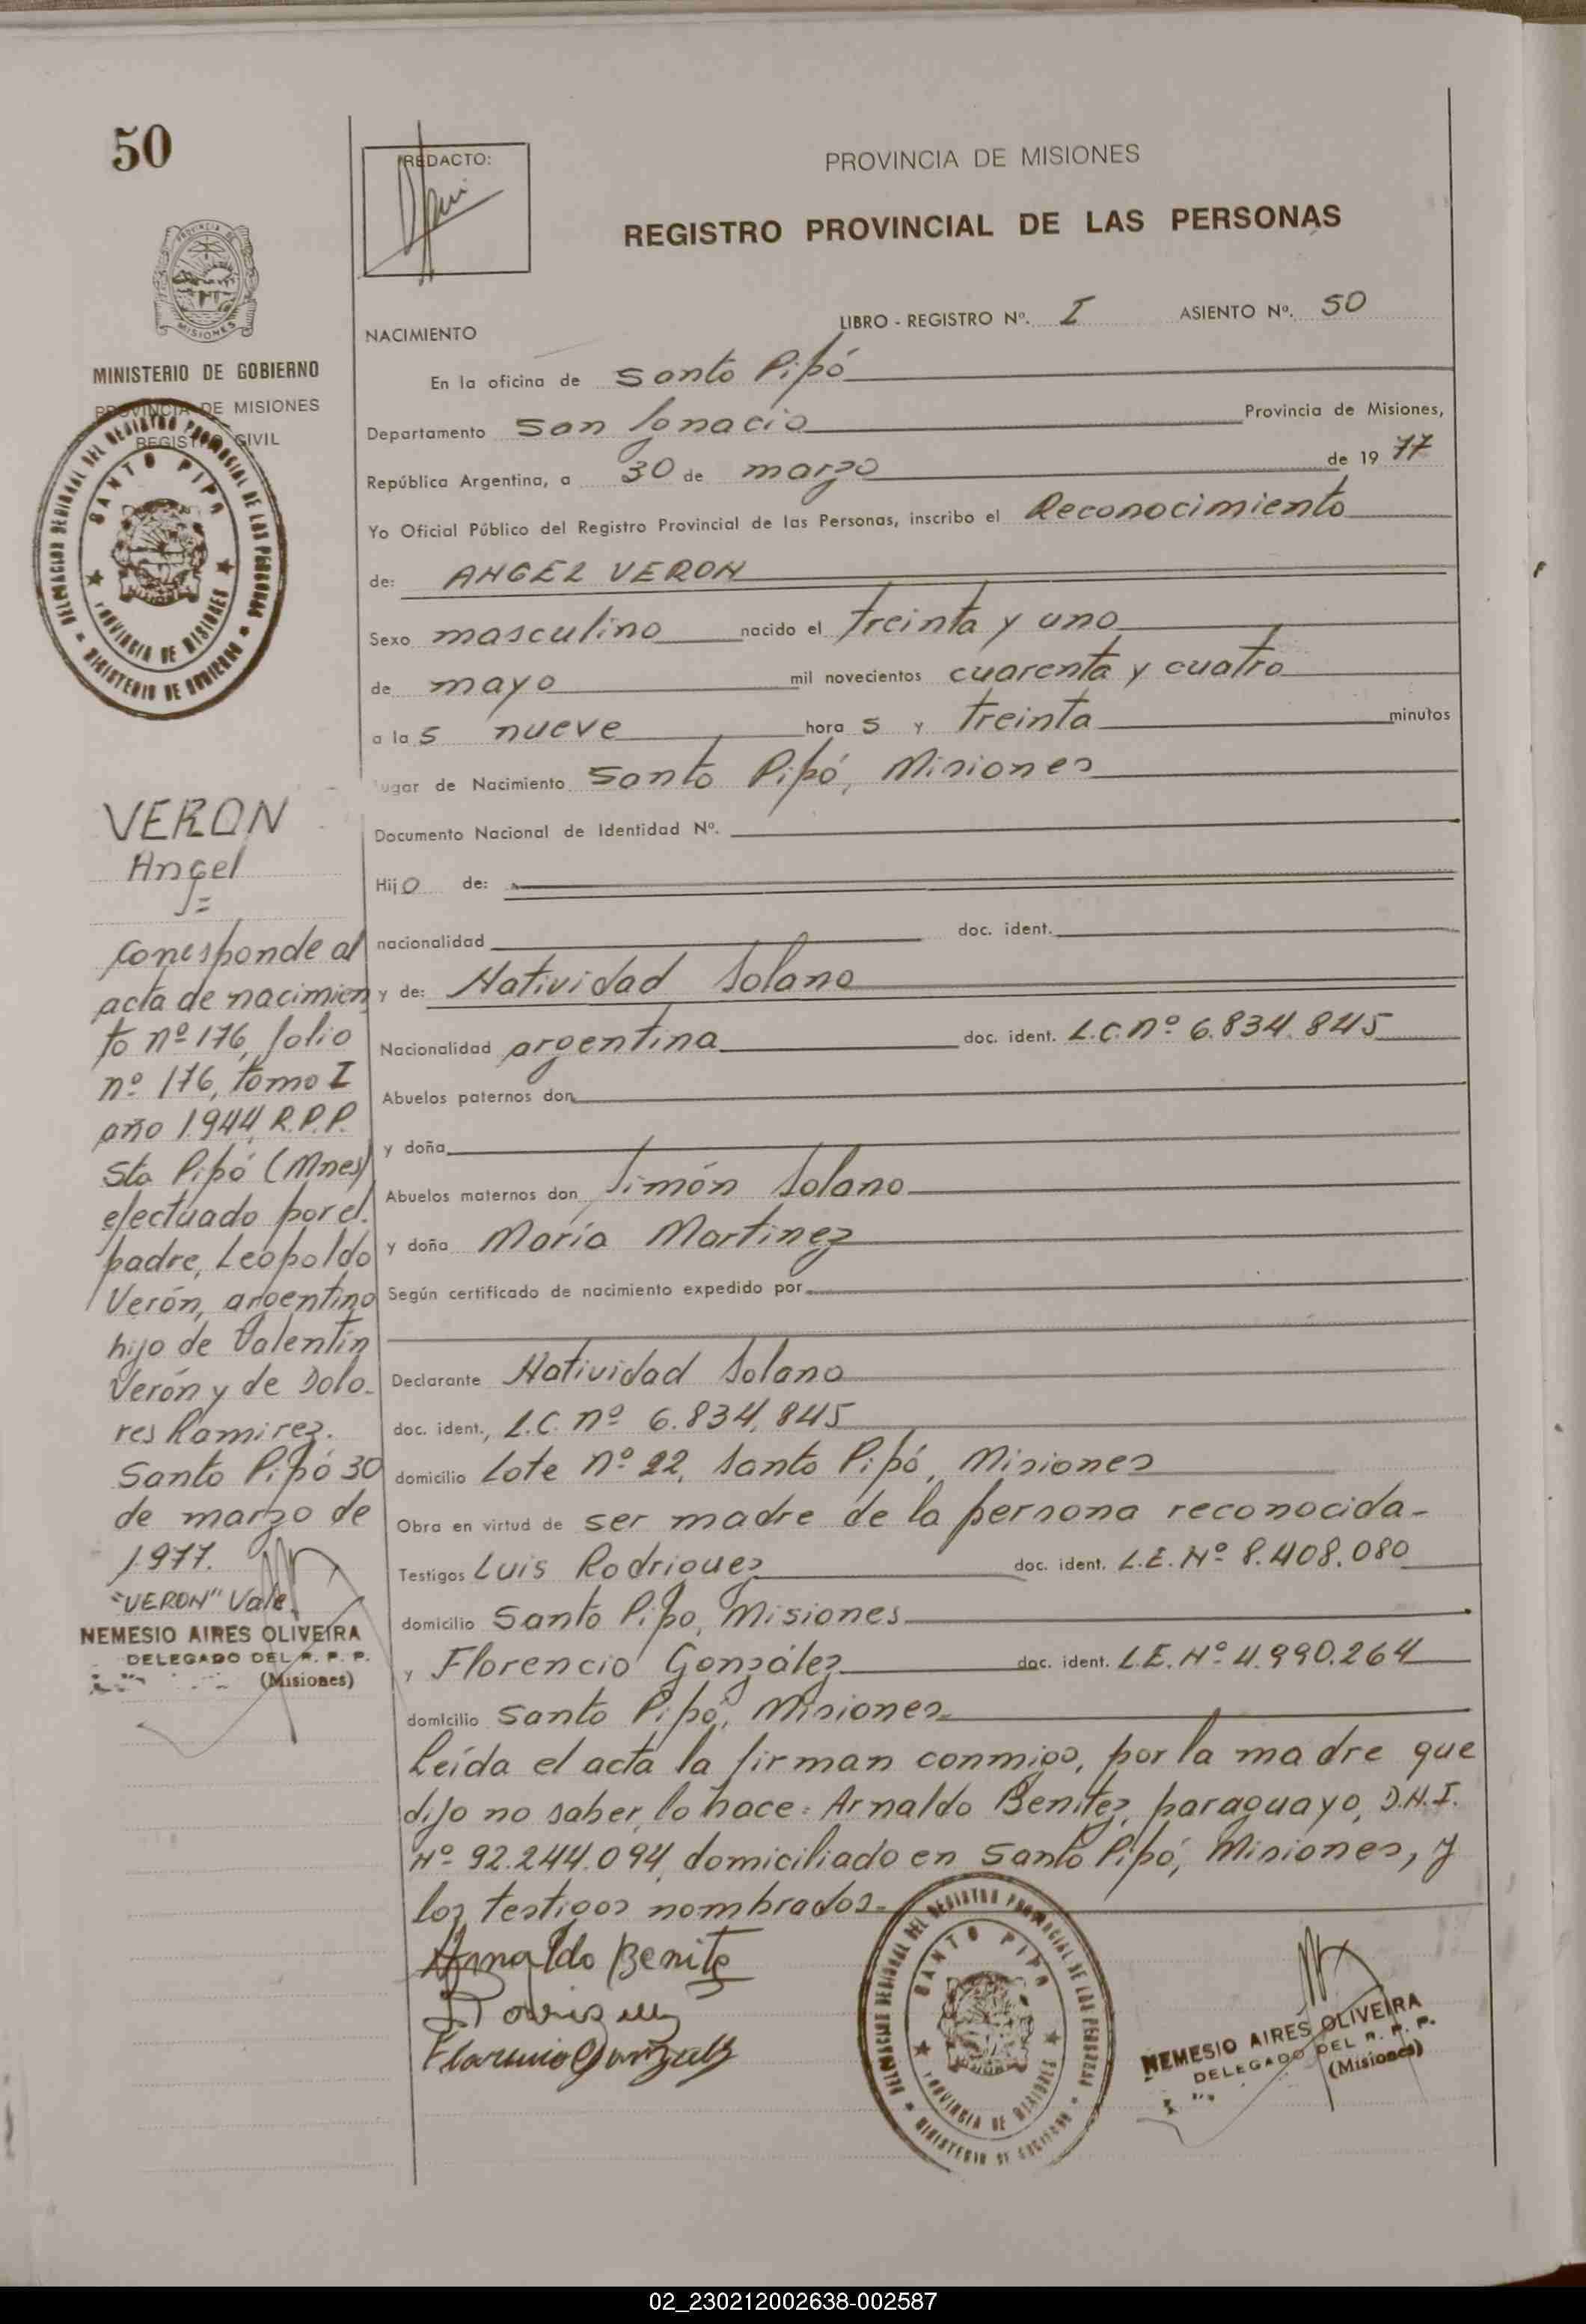 50
REDACTO:
PROVINCIA DE MISIONES
REGISTRO PROVINCIAL DE LAS PERSONAS
MISIONES
MINISTERIO DE GOBIERNO
PROVINCIA DE MISIONES
REGISTRO CIVIL
DELEGACION REGIONAL DEL REGISTRO PROVINCIAL DE LAS PERSONAS
SANTO PIPO
PROVINCIA DE MISIONES
MINISTERIO DE GOBIERNO
LIBRO - REGISTRO Nº. I ASIENTO Nº. 50
NACIMIENTO
En la oficina de Santo Pipó
Departamento San Ignacio Provincia de Misiones,
República Argentina, a 30 de marzo de 1977
Yo Oficial Público del Registro Provincial de las Personas, inscribo el Reconocimiento
de: ANGEL VERON
Sexo masculino nacido el treinta y uno
de mayo mil novecientos cuarenta y cuatro
a las nueve horas y treinta minutos
Lugar de Nacimiento Santo Pipó, Misiones
Documento Nacional de Identidad Nº.
Hijo de:
nacionalidad doc. ident.
y de: Natividad Solano
Nacionalidad argentina doc. ident. L.C. nº 6.834.845
Abuelos paternos don
y doña
Abuelos maternos don Simón Solano
y doña María Martinez
Según certificado de nacimiento expedido por
Declarante Natividad Solano
doc. ident., L.C. nº 6.834.845
domicilio Lote nº 22, Santo Pipó, Misiones
Obra en virtud de ser madre de la persona reconocida-
Testigos Luis Rodriguez doc. ident. L.E. Nº 8.408.080
domicilio Santo Pipo, Misiones
y Florencio González doc. ident. L.E. Nº 4.990.264
domicilio Santo Pipó, Misiones
Leída el acta la firman conmigo, por la madre que
dijo no saber, lo hace: Arnaldo Benitez, paraguayo, D.N.I.
Nº 92.244.094, domiciliado en Santo Pipó, Misiones, y
los testigos nombrados.
Arnaldo Benite
Florencio Gonzalez
DELEGACION REGIONAL DEL REGISTRO PROVINCIAL DE LAS PERSONAS
SANTO PIPO
PROVINCIA DE MISIONES
MINISTERIO DE GOBIERNO
NEMESIO AIRES OLIVEIRA
DELEGADO DEL R. P. P.
(Misiones)
VERON
Angel
corresponde al
acta de nacimien
to nº 176, folio
nº 176, tomo I
año 1.944, R.P.P.
Sto Pipó (Mnes)
efectuado por el
padre, Leopoldo
Verón, argentino
hijo de Valentín
Verón y de Dolo-
res Ramirez.
Santo Pipó 30
de marzo de
1.977.
"VERON" Vale
NEMESIO AIRES OLIVEIRA
DELEGADO DEL R. P. P.
(Misiones)
02_230212002638-002587